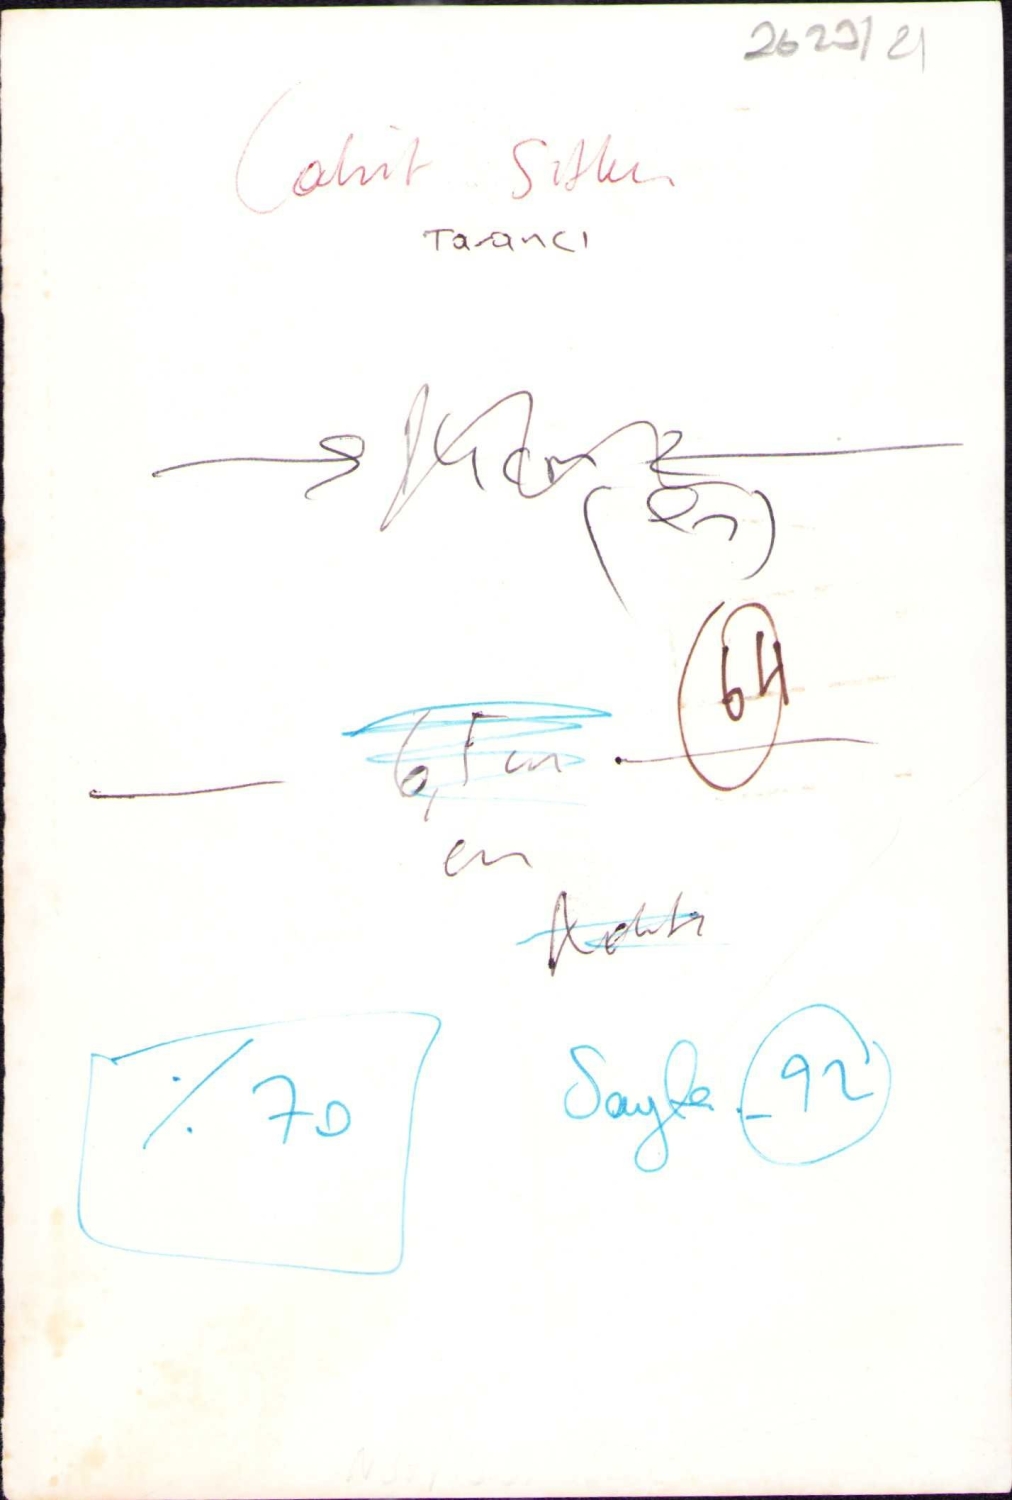 2623/21
Cahit Sıtkı
Tarancı
(en)
64
6,5 cm
en
% 70
Sayfa - 92